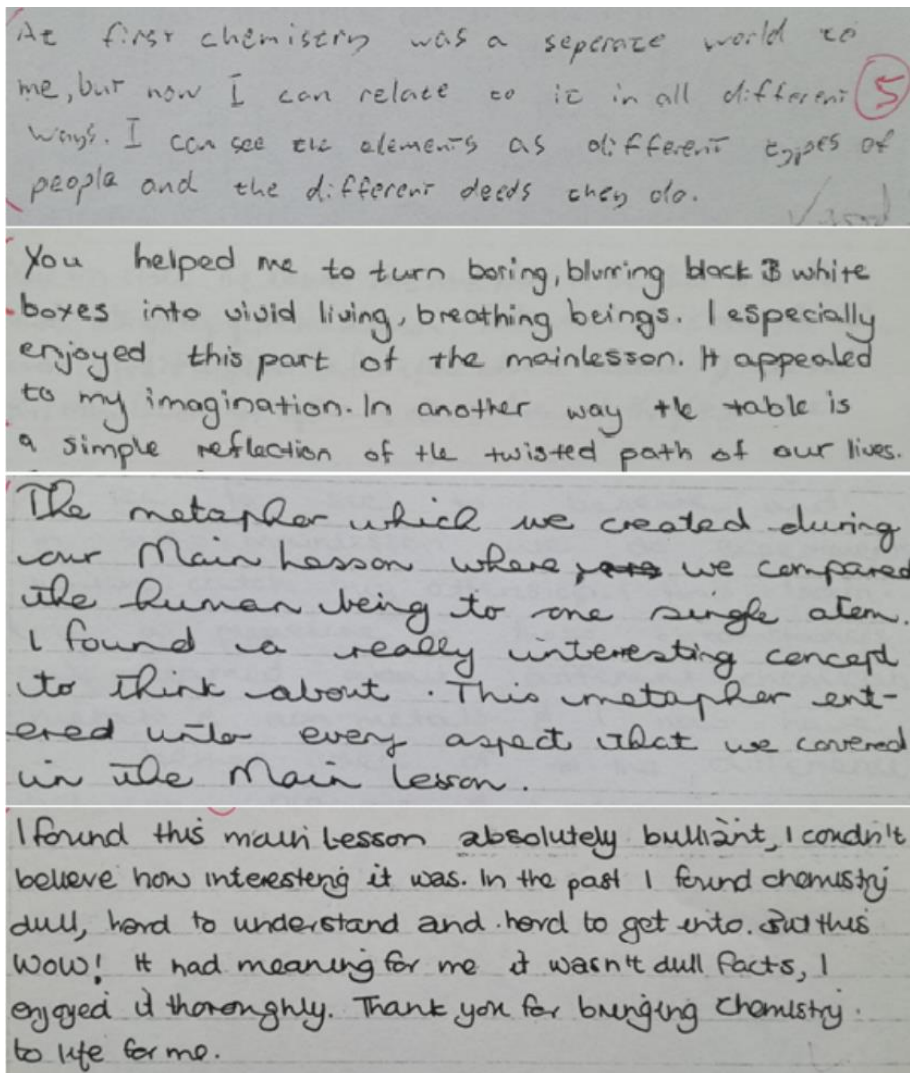 At first chemistry was a seperate world to
me, but now I can relate to it in all different 5
ways. I can see the elements as different types of
people and the different deeds they do.
You helped me to turn boring, blurring black & white
boxes into vivid living, breathing beings. I especially
enjoyed this part of the mainlesson. It appealed
to my imagination. In another way the table is
a simple reflection of the twisted path of our lives.
The metapher which we created during
our Main Lesson where we compared
the human being to one single atem.
I found a really interesting concept
to think about. This metapher ent-
ered into every aspect that we covered
in the Main Lesson.
I found this main Lesson absolutely brilliant, I couldn't
believe how interesting it was. In the past I found chemistry
dull, hard to understand and hard to get into. But this
WOW! It had meaning for me it wasn't dull facts, I
enjoyed it thoroughly. Thank you for bringing Chemistry
to life for me.